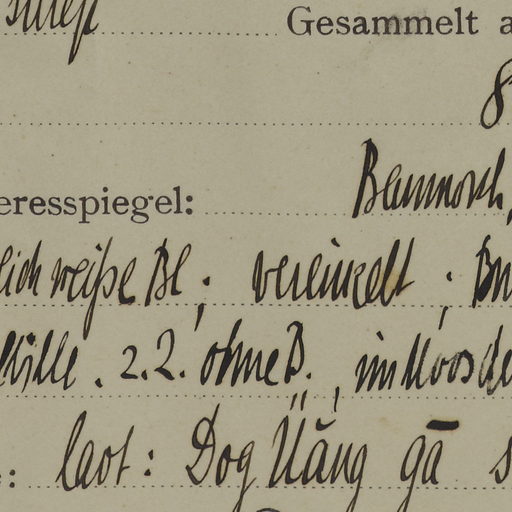 Gesammelt a
8
eresspiegel: Baummorsh,
lich weiße Bl; vereinzelt; Bu
Hülle. z.Z. ohne B., im Moos de
: laot: Dog Üăng gā s